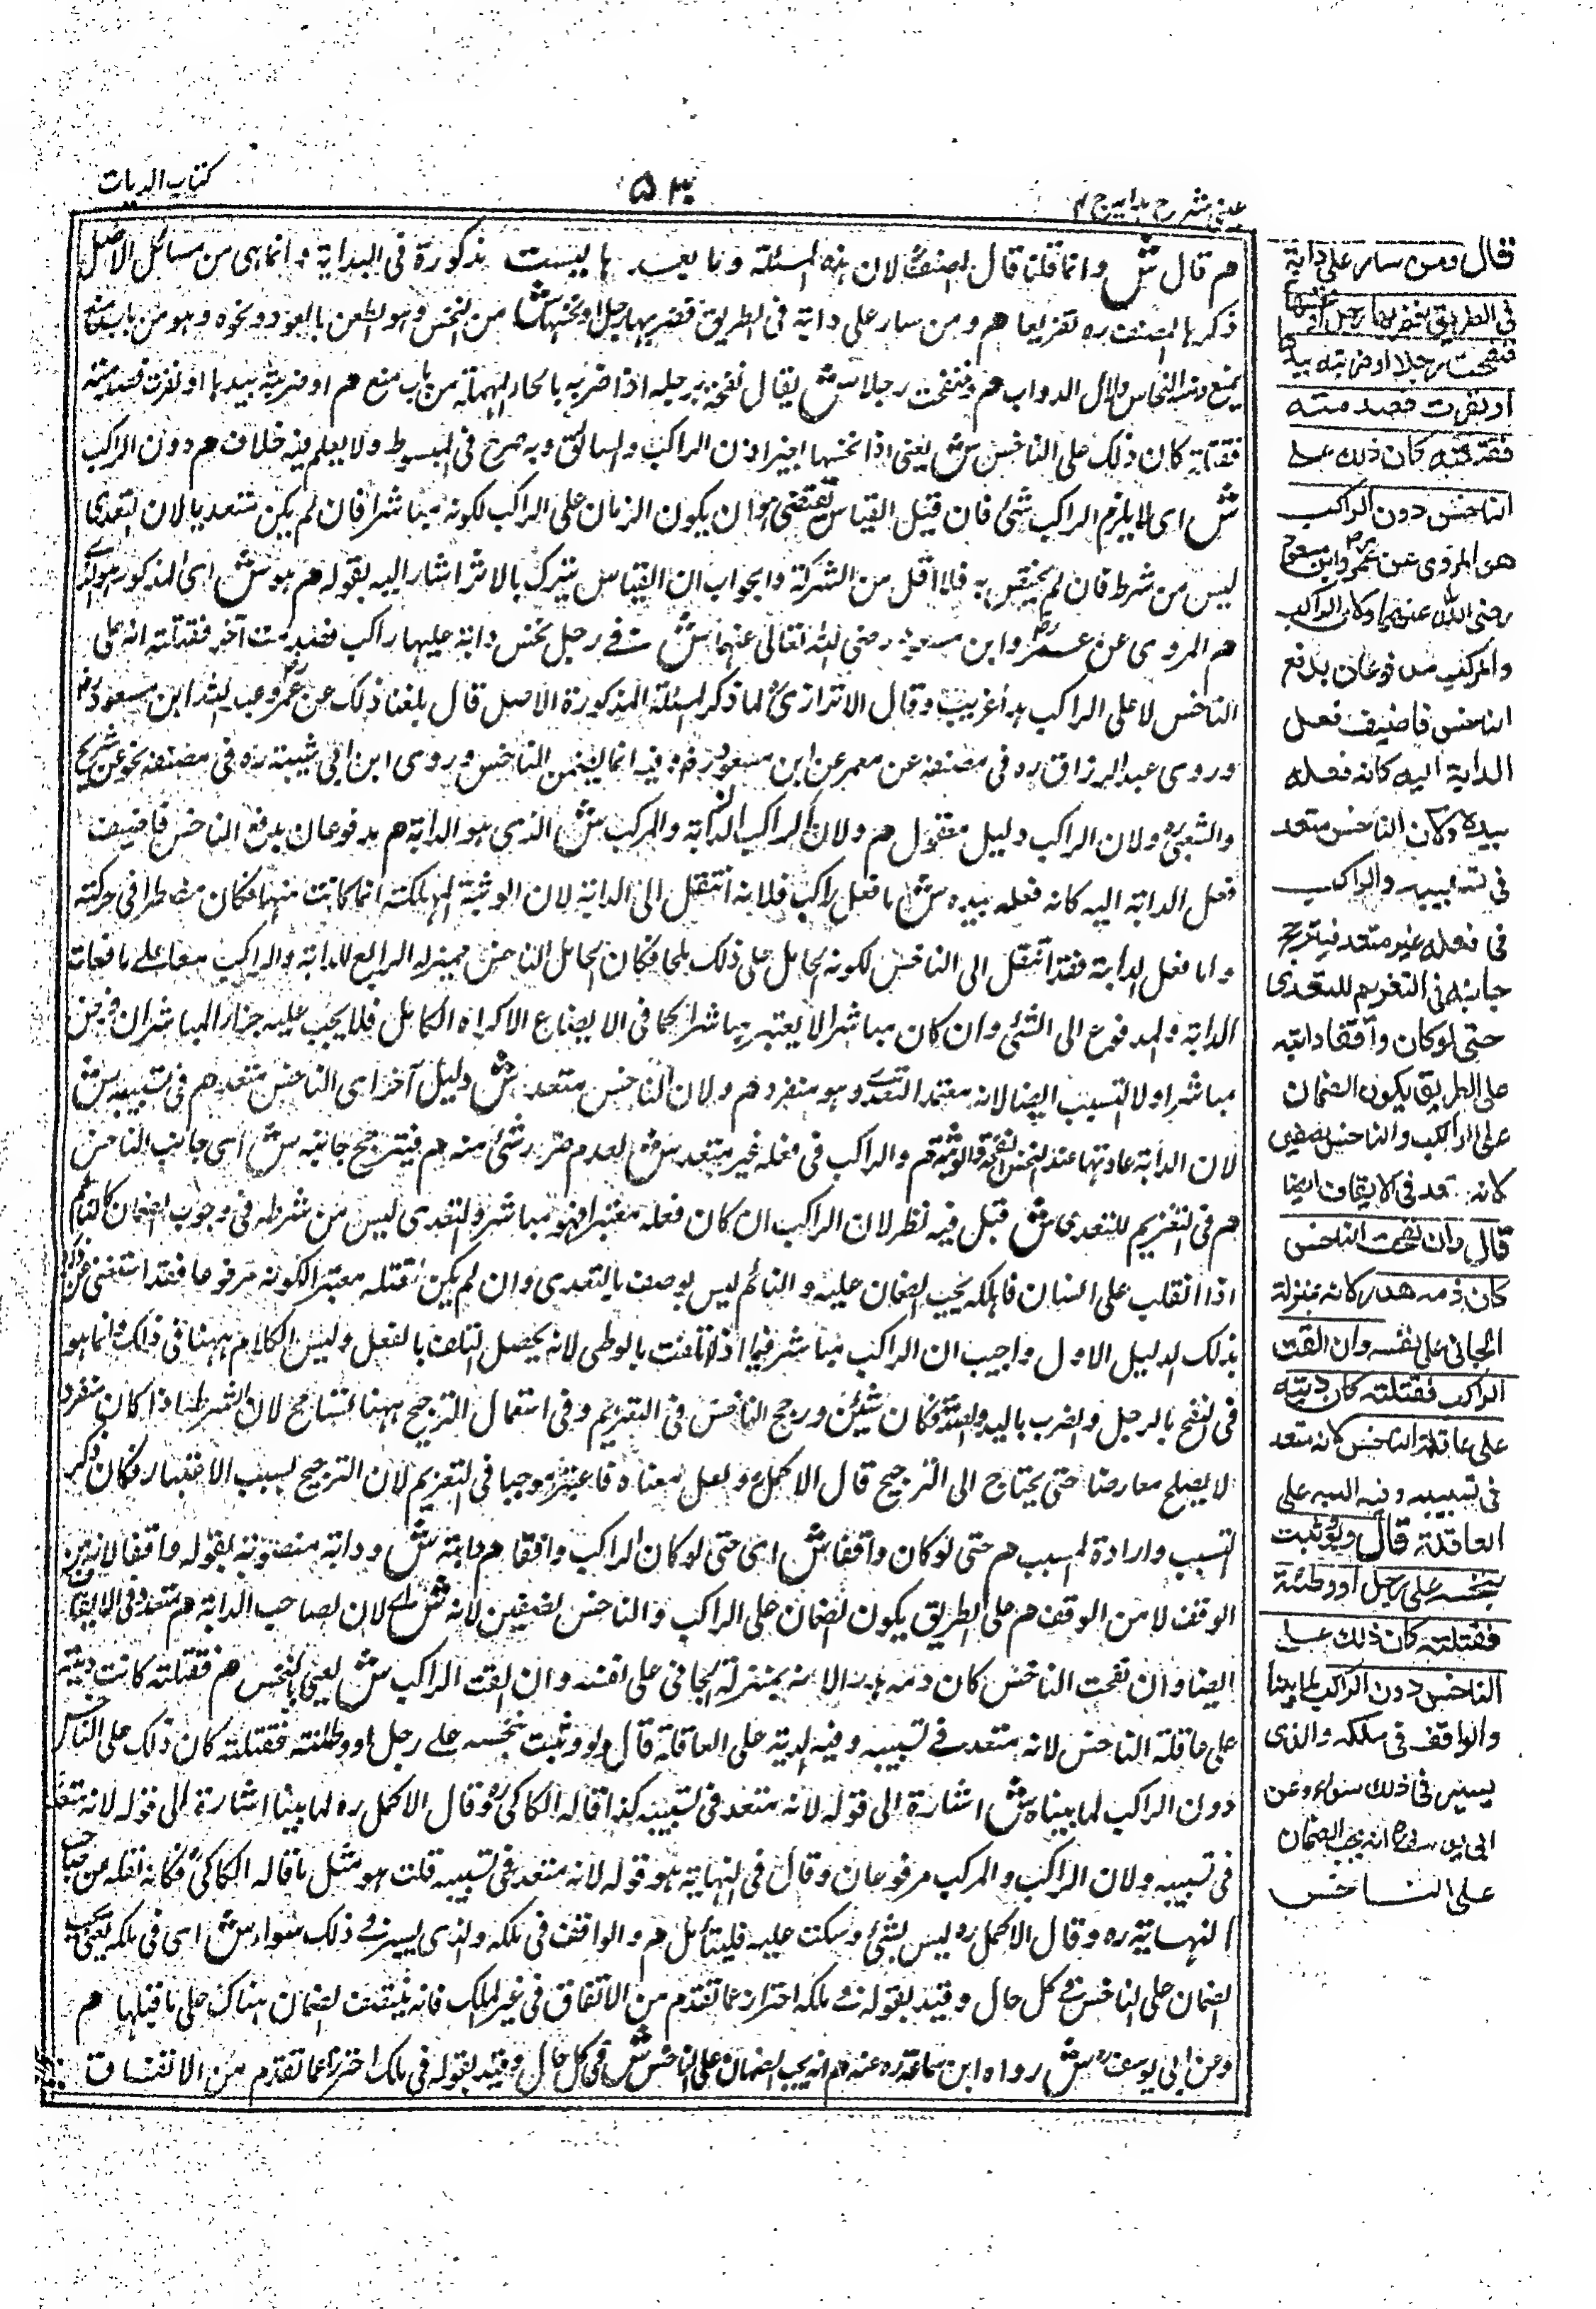 عینی شرح ہدایہ ج ۴
۵۳۰
کتاب الدیات
ھم قال ش وانما قلنا قال المصنف لان ہذہ المسئلۃ وما بعد ہا لیست مذکورۃ فی البدایۃ وانما ہی من مسائل الاصل
ذکر ہا المصنف رہ تفریعا ھم ومن سار علی دابۃ فی الطریق فضربہا رجل او نخسہا ش من النخس وہو الطعن بالعود ونحوہ وہو من باب منع
یمنع ومنہ النخاس دلال الدواب ھم فنفحت رجلا ش یقال نفحتہ برجلہ اذا ضربہ بالحاء المہملۃ من باب منع ھم او ضربتہ بیدہا او نفرت فصدمتہ
فقتلتہ کان ذلک علی الناخس ش یعنی اذا نخسہا بغیر اذن الراکب والسائق وبہ صرح فی المبسوط ولا یعلم فیہ خلاف ھم دون الراکب
ش ای لا یلزم الراکب شئ فان قیل القیاس یقتضی ان یکون الزمان علی الراکب لکونہ مباشرا فان لم یکن متعدیا لان التعدی
لیس من شرطہ فان لم یختص بہ فلا اقل من الشرکۃ والجواب ان القیاس یترک بالاثر اشار الیہ بقولہ ھم ہو ش ای المذکور
ھم المروی عن عمر وابن مسعود رضی اللہ تعالی عنہما ش فے رجل نخس دابۃ علیہا راکب فصدمت آخر فقتلتہ انہ علی
الناخس لا علی الراکب ہذا غریب وقال الاترازی لما ذکر المسئلۃ المذکورۃ الاصل قال بلغنا ذلک عن عمر وعبد اللہ ابن مسعود
وروی عبد الرزاق رہ فی مصنفہ عن معمر عن ابن مسعود وفیہ انما یضمن الناخس وروی ابن ابی شیبۃ رہ فی مصنفہ نحو عن شریح
والشعبی ولان الراکب دلیل معقول ھم ولان الراکب الدابۃ والمرکب ش الذی ہو الدابۃ ھم مدفوعان بدفع الناخس فاضیف
فعل الدابۃ الیہ کانہ فعلہ بیدہ ش اما فعل راکب فلانہ انتقل الی الدابۃ لان الوثبۃ المہلکۃ انما کانت منہا فکان مضطرا فی حرکتہ
واما فعل الدابۃ فقد انتقل الی الناخس لکونہ الحامل علی ذلک فکان الحامل الناخس بمنزلہ الدافع للدابۃ والراکب معا علی ما فعلت
الدابۃ والمدفوع الی الشئ وان کان مباشرا لا یعتبر مباشرا کما فی الایضاع الاکراہ الکامل فلا یجب علیہ جزاء المباشر
مباشرا ولا التسبیب ایضا لانہ معتمد التعدی وہو منفرد ھم ولان الناخس متعد ش دلیل آخر ای الناخس متعد ھم فی تسبیبہ ش
لان الدابۃ عادتہا عند النخس النفحۃ والوثبۃ ھم والراکب فی فعلہ غیر متعد ش لعدم صدور شئ منہ ھم فیترجح جانبہ ش ای جانب الناخس
ھم فی التغریم للتعدی ش قیل فیہ نظر لان الراکب ان کان فعلہ معتبرا فہو مباشر والتعدی لیس من شرطہ فی وجوب الضمان کالنائم
اذا انقلب علی انسان فاہلکہ یجب الضمان علیہ والنائم لیس بوصف بالتعدی وان لم یکن فعلہ معتبرا لکونہ مدفوعا فقد استغنی عن
بذلک الدلیل الاول واجیب ان الراکب مباشر فیما اذا تلفت بالوطی لانہ یحصل التلف بالفعل ولیس الکلام ہہنا فی ذلک وانما ہو
فی النفح بالرجل والضرب بالید والصدمۃ فکان ورجح الناخس فی التغریم وفی استعمال الترجیح ہہنا تسامح لان الشرط اذا کان منفردا
لا یصلح معارضا حتی یحتاج الی الترجیح قال الاکمل ولعل معناہ فاعتبر موجبا فی التغریم لان الترجیح بسبب الاعتبار فکان ذکر
السبب وارادۃ المسبب ھم حتی لو کان واقفا ش ای حتی لو کان الراکب واقفا ھم دابتہ ش ودابۃ منصوبۃ بقولہ واقفا لانہ من
الوقف لا من الوقف ھم علی الطریق یکون الضمان علی الراکب والناخس نصفین لانہ ش ای لان صاحب الدابۃ ھم متعد فی الایقاف
ایضا وان نفحت الناخس کان دمہ ہدرا لانہ بمنزلۃ الجانی علی نفسہ وان القت الراکب ش یعنی بالنخس ھم فقتلتہ کانت دیتہ
علی عاقلۃ الناخس لانہ متعد فے تسبیبہ وفیہ الدیۃ علی العاقلۃ قال ولو وثبت بنخسہ علے رجل او وطئتہ فقتلتہ کان ذلک علی الناخس
دون الراکب لما بیناہ ش اشارۃ الی قولہ لانہ متعد فی تسبیبہ کذا قالہ الکاکی وقال الاکمل رہ لما بینا اشارۃ الی قولہ لانہ متعد
فی تسبیبہ ولان الراکب والمرکب مدفوعان وقال فی النہایۃ ہو قولہ لانہ متعد فی تسبیبہ قلت ہو مثل ما قالہ الکاکی فکانہ نقلہ من صاحب
النہایۃ رہ وقال الاکمل رہ لیس بشئ وسکت علیہ فلیتأمل ھم والواقف فی ملکہ والذی یسیر فے ذلک سواء ش ای فی ملکہ یعنی یجب
الضمان علی الناخس فے کل حال وقید بقولہ فے ملکہ احتراز عما تقدم من الاتفاق فی غیر الملک فانہ یتنصف الضمان ہناک علی ما قبلہا ھم
وعن ابی یوسف ش رواہ ابن سماعۃ رہ عنہ ھم انہ یجب الضمان علی الناخس ش فی کل حال وقید بقولہ فی ملک احترازا عما تقدم من الاتفاق
قال ومن سار علی دابۃ
فی الطریق فضربہا رجل او نخسہا
فنفحت رجلا او ضربتہ بیدہا
او نفرت فصدمتہ
فقتلتہ کان ذلک علے
الناخس دون الراکب
هو المروی عن عمر وابن مسعود
رضی اللہ عنہما ولان الراکب
والمرکب مدفوعان بدفع
الناخس فاضیف فعل
الدابۃ الیہ کانہ فعلہ
بیدہ ولان الناخس متعد
فی تسبیبہ والراکب
فی فعلہ غیر متعد فیترجح
جانبہ فی التغریم للتعدی
حتی لو کان واقفا دابتہ
علی الطریق یکون الضمان
علی الراکب والناخس نصفین
لانہ متعد فی الایقاف ایضا
قال وان نفحت الناخس
کان دمہ ھدر لانہ بمنزلۃ
الجانی علی نفسہ وان القت
الراکب فقتلتہ کان دیتہ
علی عاقلۃ الناخس لانہ متعد
فی تسبیبہ وفیہ الدیۃ علی
العاقلۃ قال ولو وثبت
بنخسہ علی رجل او وطئتہ
فقتلتہ کان ذلک علے
الناخس دون الراکب لما بینا
والواقف فی ملکہ والذی
یسیر فی ذلک سواء وعن
ابی یوسف رہ انہ یجب الضمان
علی الناخس